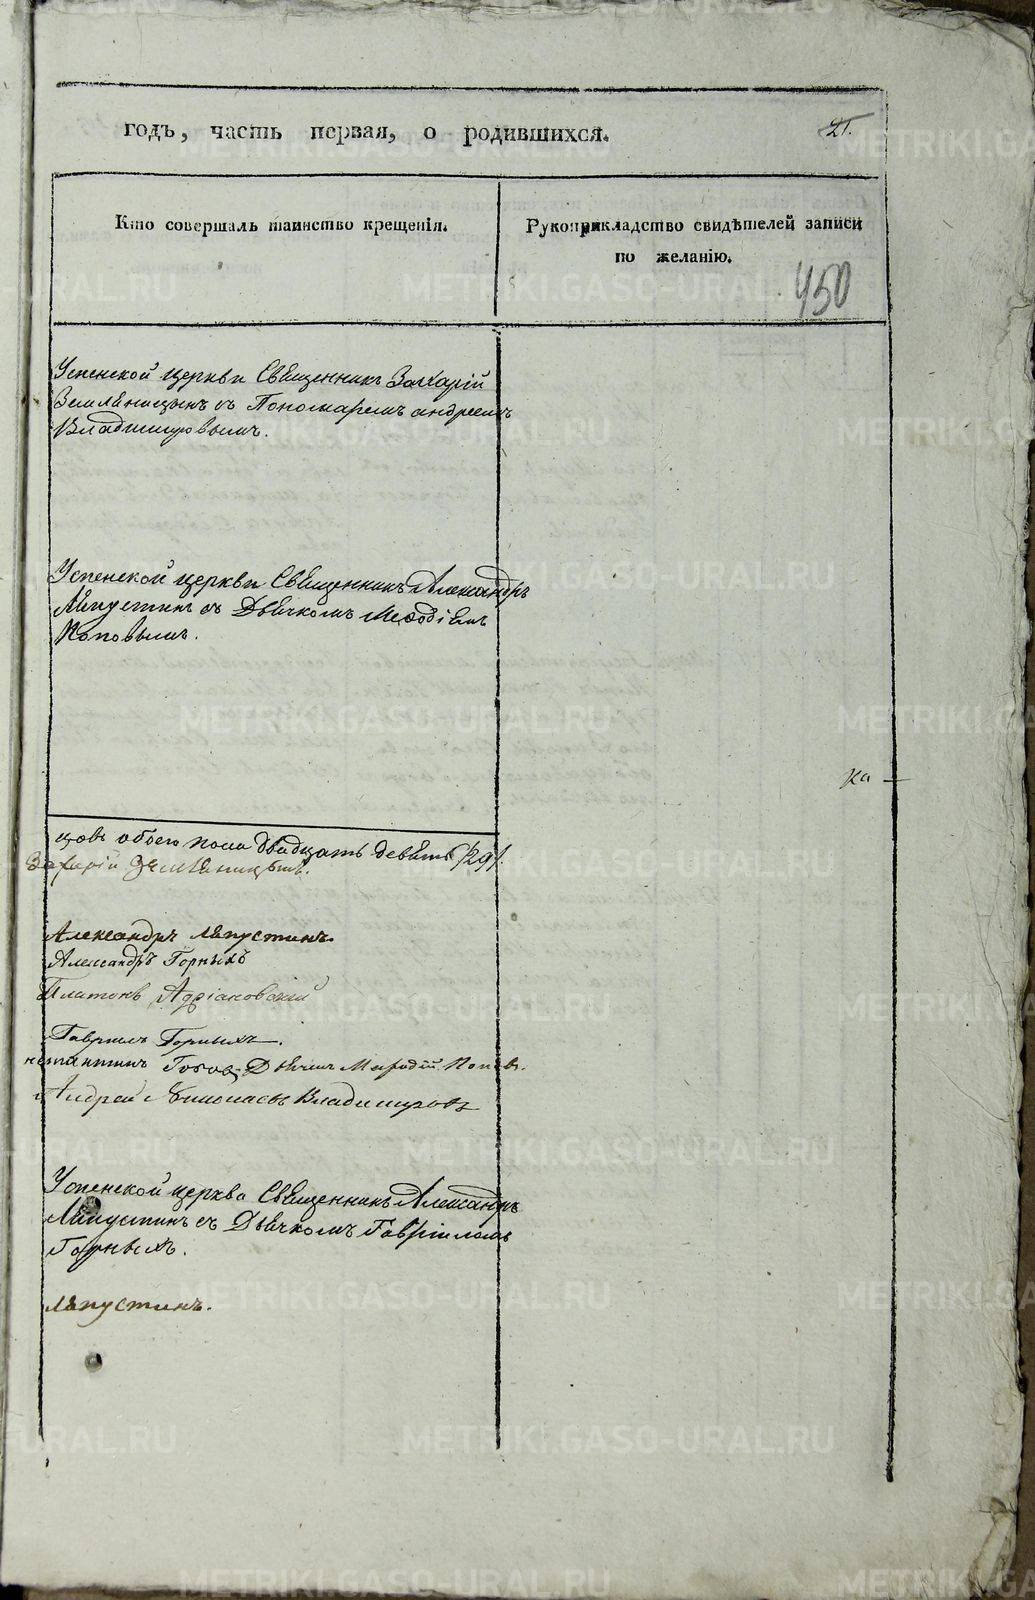 годъ, часть первая, о родившихся.
21.
Кто совершалъ таинство крещенія.
Рукоприкладство свидѣтелей записи
по желанію.
450
Успенской церкви Священникъ Захарій
Земляницынъ съ Пономаремъ андреемъ
Владимировымъ.
Успенской церкви Священникъ Александръ
Ляпустинъ съ Дьячкомъ Меѳодіемъ
Поповымъ.
цовъ обоего пола двадцать девять /29/.
Захарій Земляницынъ.
Александръ Ляпустинъ.
Александръ Горныхъ
Платонъ Адріановскій
Гавриилъ Горныхъ.
Дьячекъ Меѳодій Поповъ.
Андрей Владимировъ
Успенской церкви Священникъ Александръ
Ляпустинъ съ Дьячкомъ Гавріиломъ
Горныхъ.
Ляпустинъ.
METRIKI.GASO-URAL.RU